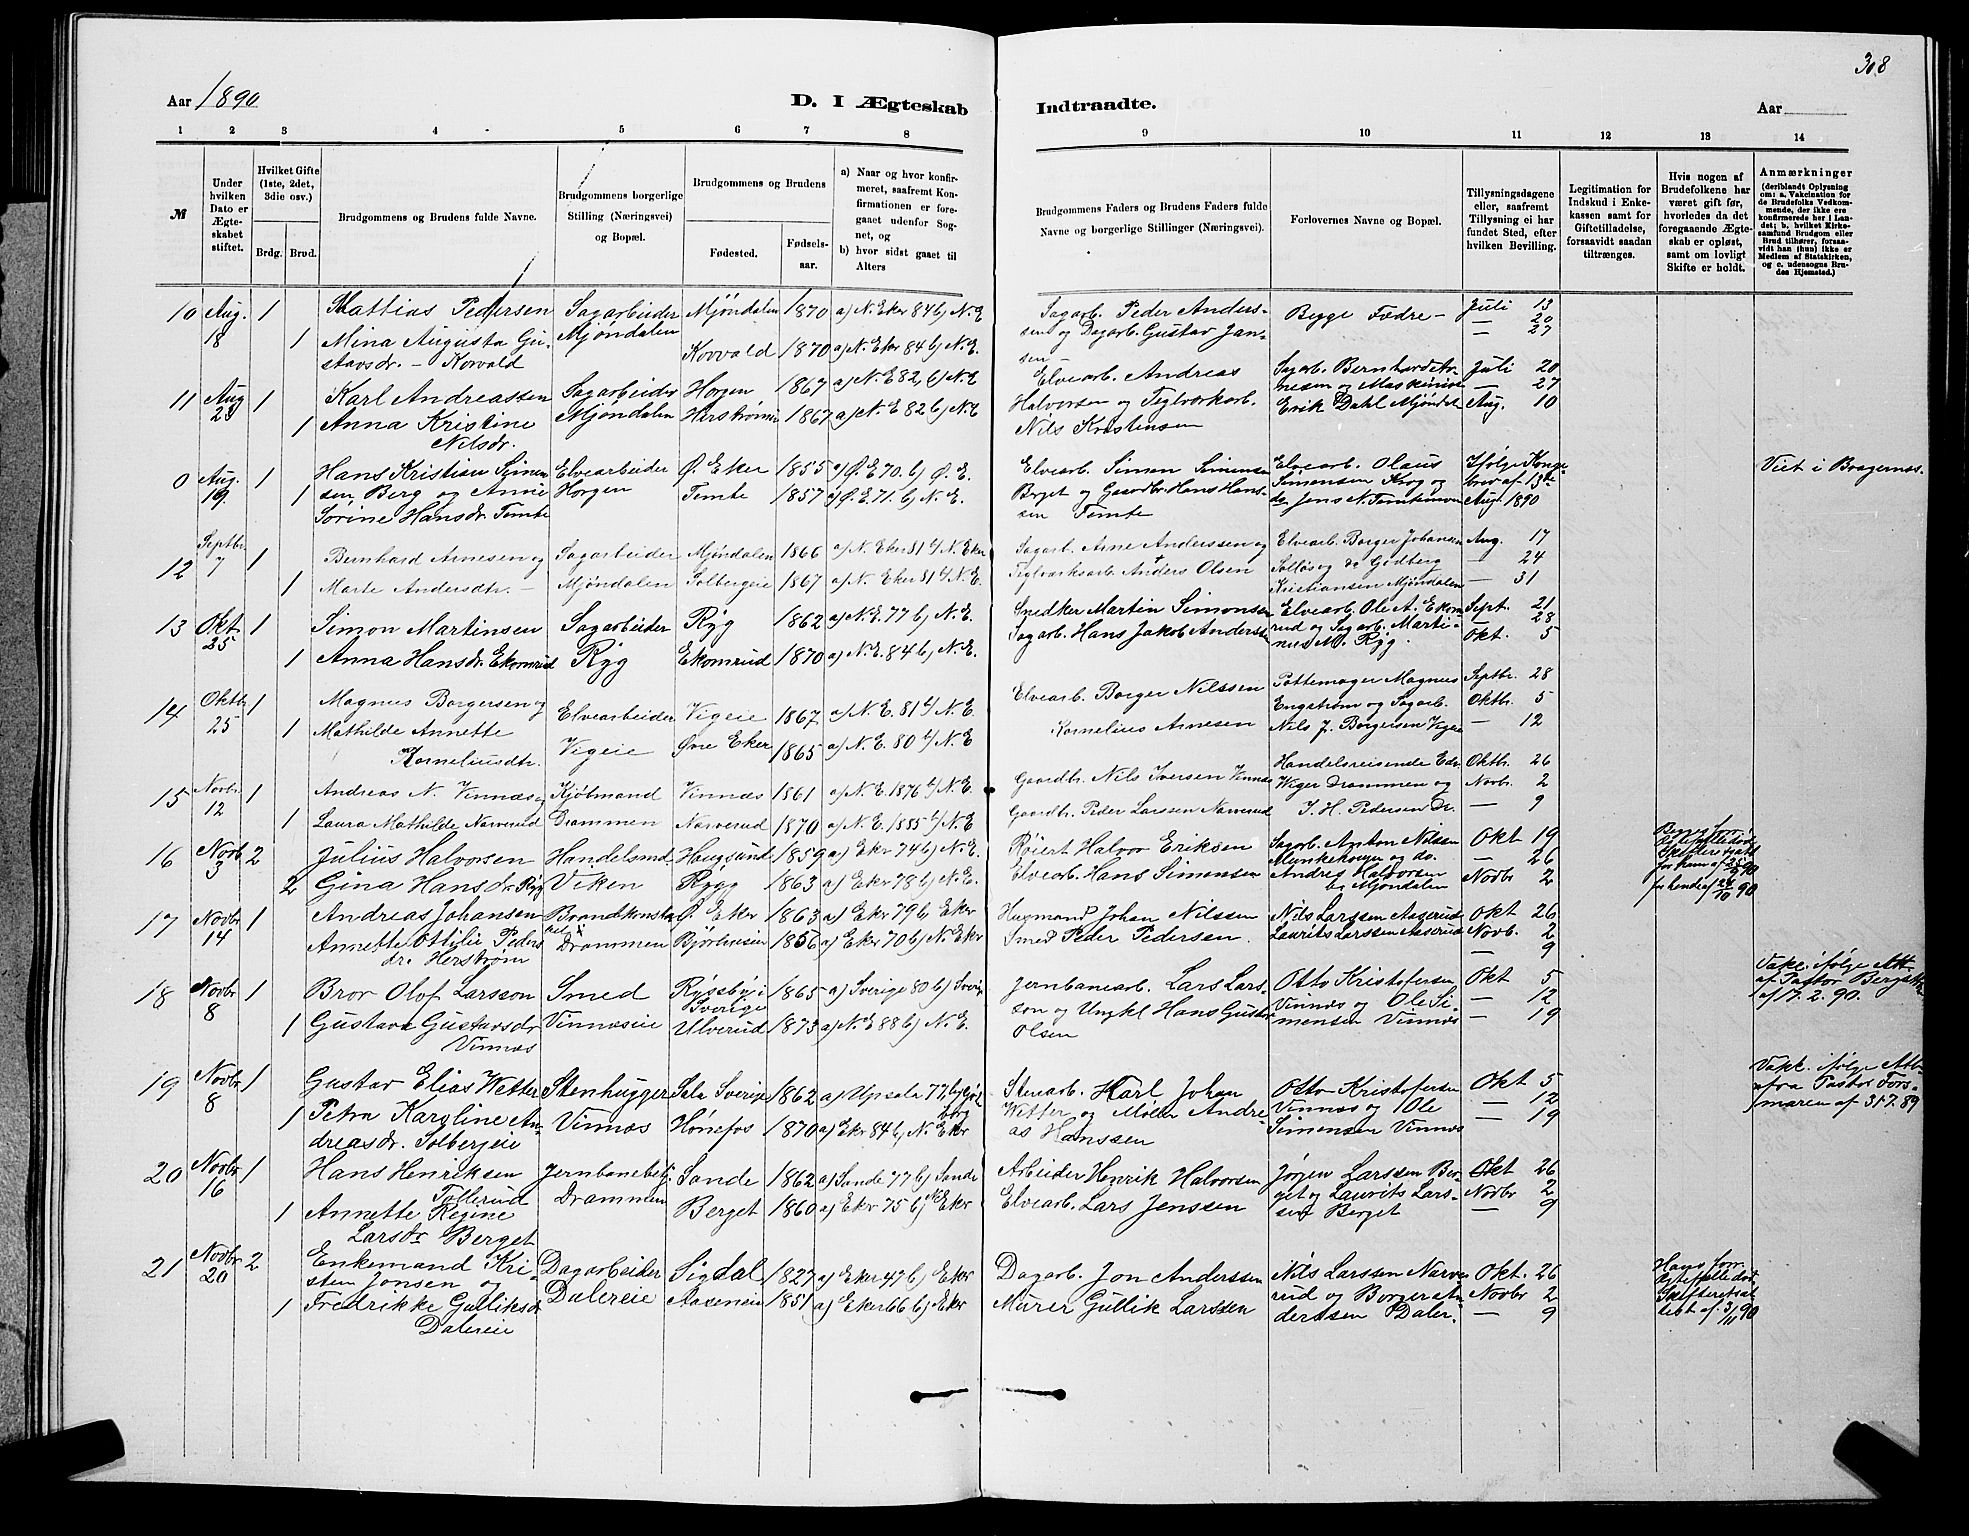 308
Aar 1890
D. I Ægteskab
Indtraadte.
Aar
1 2 3 4 5 6 7 8 9 10 11 12 13 14
№
Under hvilken Dato er Ægteskabet stiftet.
Hvilket Gifte (1ste, 2det, 3die osv.)
Brdg. Brud.
Brudgommens og Brudens fulde Navne.
Brudgommens borgerlige Stilling (Næringsvei) og Bopæl.
Brudgommens og Brudens
Fødested.
Fødselsaar.
a) Naar og hvor konfirmeret, saafremt Konfirmationen er foregaaet udenfor Sognet, og
b) hvor sidst gaaet til Alters
Brudgommens Faders og Brudens Faders fulde Navne og borgerlige Stillinger (Næringsvei).
Forlovernes Navne og Bopæl.
Tillysningsdagene eller, saafremt Tillysning ei har fundet Sted, efter hvilken Bevilling.
Legitimation for Indskud i Enkekassen samt for Giftetilladelse, forsaavidt saadan tiltrænges.
Hvis nogen af Brudefolkene har været gift før, hvorledes da det foregaaende Ægteskab er opløst, samt om lovligt Skifte er holdt.
Anmærkninger
(deriblandt Oplysning om: a. Vakcination for de Brudefolks Vedkommende, der ikke ere konfirmerede her i Landet; b. hvilket Kirkesamfund Brudgom eller Brud tilhører, forsaavidt han (hun) ikke er Medlem af Statskirken, og c. udensogns Brudes Hjemsted.)
10 Aug. 18 1 Mattias Pedersen Sagarbeider Mjøndalen 1870 a) N. Eker 84 b) N. E
1 Mina Augusta Gustavsdr. – Korvald Mjøndalen Korvald 1870 a) N. Eker 84 b) N. E.
Sagarb. Peder Anderssen og Dagarb. Gustav Jansen – Begge Fædre – Juli 13 — 20 — 27
11 Aug 1 Karl Andreassen Sagarbeider Horgen 1867 a) N. E 82, b) N. E
1 Anna Kristine Nilsdr. Mjøndalen 1867 a) N. E 82 b) N. E
Elvearb. Andreas Halvorsen og Teglværkarb. Nils Kristensen
Sagarb. Bernhard Arnesen og Erik Dahl Juli 20 — 27 Aug. 10
0 Aug. 19 1 Hans Kristian Simensen Berg og Elvearbeider Ø. Eker 1855 a) Ø. E 70. b) Ø. E.
1 Anne Sørine Hansdr. Temte Horgen Temte 1857 a) Ø. E. 71. b) N. E.
Elvearb. Simen Simensen Berget og Gaardbr. Hans Hanssen Temte
Elvearb. Olaus Simensen Krog og Jens N. Ifølge Kongebrev af 13de Aug. 1890
Viet i Bragernæs.
12 Septbr. 7 1 Bernhard Arnesen og Sagarbeider Mjøndalen 1866 a) N. Eker 81 b) N. Eker
1 Marte Andersdtr. – Mjøndalen Solbergeie 1867 a) N. Eker 81 b) N. E.
Sagarb. Arne Anderssen og Teglværksarb. Anders Olsen
Elvearb. Borger Johansen Solfos og do Gudberg Kristiansen Mjøndalen Aug. 17 — 24 — 31
13 Okt 25 1 Simon Martinsen Sagarbeider Ryg 1862 a) N. E. 77 b) N. E.
1 Anna Hansdr. Ekornrud Ryg Ekornrud 1870 a) N. E. 84 b) N. E.
Snedker Martin Simonsen Sagarb. Hans Jakob Andersen
Elvearb. Ole A. Ekornrud og Sagarb. Martinus M. Ryg. Sept. 21 28 Okt. 5
14 Oktbr. 25 1 Magnus Borgersen og Elvearbeider Vigeie 1867 a) N. E. 81 b) N. E.
1 Mathilde Annette Korneliusdtr. Vigeie Øvre Eker 1865 a) N. E. 80 b) N. E
Elvearb. Borger Nilssen Kornelius Arnesen
Pottemager Magnus Engstrøm og Sagarb. Nils J. Borgersen Vigeie Septbr. 28 Oktbr. 5 — 12
15 Novbr. 12 1 Andreas N. Vinnæs og Kjøbmand Vinnæs 1861 a) N. E. 1876 b) N. E.
1 Laura Mathilde Narverud Drammen Narverud 1870 a) N. E. 1885 b) N. E
Gaardbr. Nils Iversen Vinnæs Gaardbr. Peder Larssen Narverud
Handelsreisende Edv. Wiger Drammen og J. H. Pedersen Dr. Oktbr. 26 Novbr. 2 — 9
16 Novb. 3 2 Julius Halvorsen Handelsmd. Haugsund 1859 a) Eker 74 b) N. E.
2 Gina Hansdr. Ryg Viken Rygg 1863 a) Eker 78 b) N. E.
Røiert Halvor Eriksen Elvearb. Hans Simensen
Sagarb. Anton Nilsen og do. Andres Halvorsen Mjøndalen Okt 19 — 26 Novbr 2
17 Novbr. 14 1 Andreas Johansen Ø. Eker 1863 a) Eker 79 b) Eker
Annette Ottilie Pedersdr. Herstrøm Drammen 1856 a) Eker 70 b) N. Eker
Husmand Johan Nilssen Smed Peder Pedersen.
Nils Larssen Aaserud Laurits Larssen Aaserud Okt 26 Novb. 2 9
18 Novbr 8 1 Bror Olof Larsson Smed Ryssby i Sverige 1865 a) Sverige 80 b) Sverige
1 Gustava Gustavsdr Vinnæs Vinnæseie Ulverud 1873 a) N. E 88 b) N. E.
Jernbanearb. Lars Larsson og Ungkl Hans Gustav Olsen
Otto Kristofersen Vinnæs og Ole Simensen Vinnæs Okt 5 — 12 — 19
Vakc. ifølge Att. af Pastor af 17. 2. 90.
19 Novbr. 8 1 Gustav Elias Wetter Stenhugger Sala Sverige 1862 a) Upsala 77, b) Gøteborg
1 Petra Karoline Andreasdr. Solbergeie Vinnæs Hønefos 1870 a) Eker 84 b) N. Eker
Stenarb. Karl Johan Wetter og Møller Andreas Hanssen
Otto Kristofersen Vinnæs og Ole Simensen Vinnæs Okt 5 — 12 — 19
Vakc. ifølge Att. fra Pastor Forsmaren af 31.7.89
20 Novbr. 16 1 Hans Henriksen Tollerud Jernbanebetj. Sande 1862 a) Sande 77 b) Sande
1 Annette Regine Larsdr Berget Drammen Berget 1860 a) Eker 75 b) N. Eker
Arbeider Henrik Halvorsen Elvearb. Lars Jenssen
Jørgen Larssen Berget og Laurits Larssen Berget Okt 26 Novbr 2 — 9
21 Novbr. 20 2 Enkemand Kristen Jonsen og Dagarbeider Sigdal 1827 a) Eker 47 b) Eker
1 Fredrikke Gulliksdr. Dalereie Dalereie Aaseneie 1851 a) Eker 66 b) Eker
Dagarb. Jon Anderssen Murer Gullik Larssen
Nils Larssen Narverud og Borger Anderssen Daler. Okt. 26 Novbr 2 — 9
Hans forr. Ægtefælle død. Skifteretsattest af 3/11 90